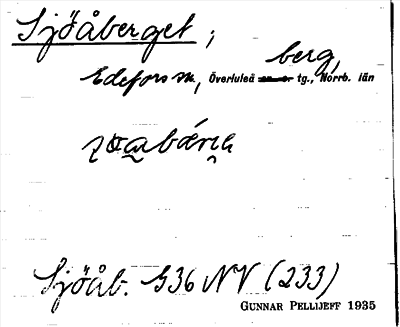 Sjöåberget ;
berg,
Edefors sn, Överluleå tg., Norrb. län
Sjöåb. G36 NV (233)
GUNNAR PELLIJEFF 1935